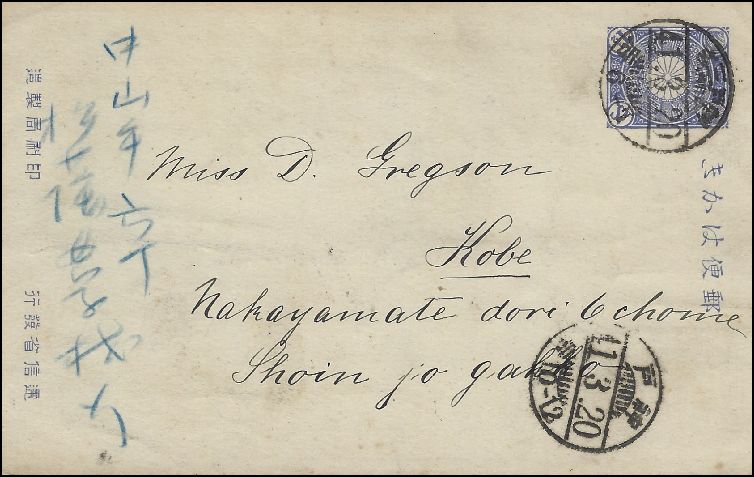 郵便はかき
41.3.20
Miss D. Gregson
Kobe
Nakayamate dori 6 chome
Shoin jo gakko
神戸
41.3.20
中山手六丁
松蔭女学校
印刷局製造
逓信省發行